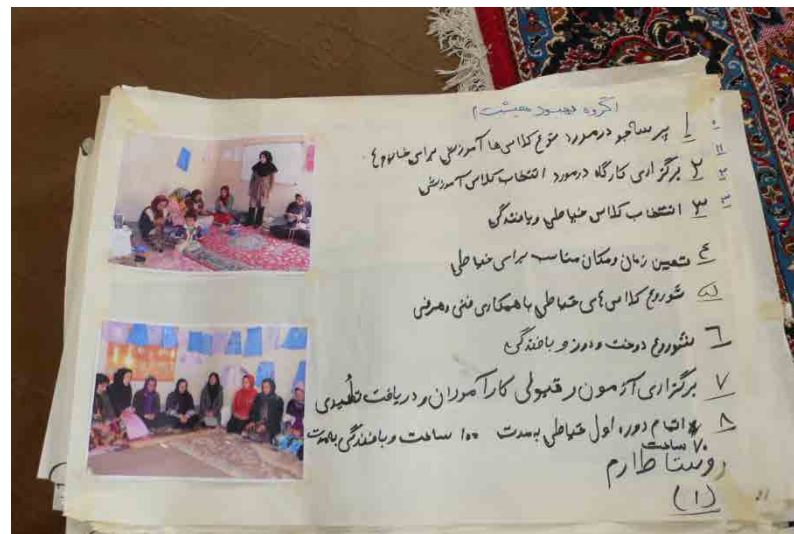 (گروه بهبود معیشت)
۱ پرسشجو درمورد متوع کلاس ها آموزشی برای خانوم ها
۲ برگزاری کارگاه درمورد انتخاب کلاس آموزشی
۳ انتخاب کلاس خیاطی وبافندگی
۴ تعیین زمان ومکان مناسب برای خیاطی
۵ شوروع کلاس های خیاطی باهمکاری فنی وحرفی
۶ شوروع دوخت ودوز و بافندگی
۷ برگزاری آزمون و قبولی کارآموزان و دریافت تأییدی
۸ اتمام دوره اول خیاطی بمدت ۱۰۰ ساعت و بافندگی بمدت
۷۰ ساعت
روستا طارم
(۱)